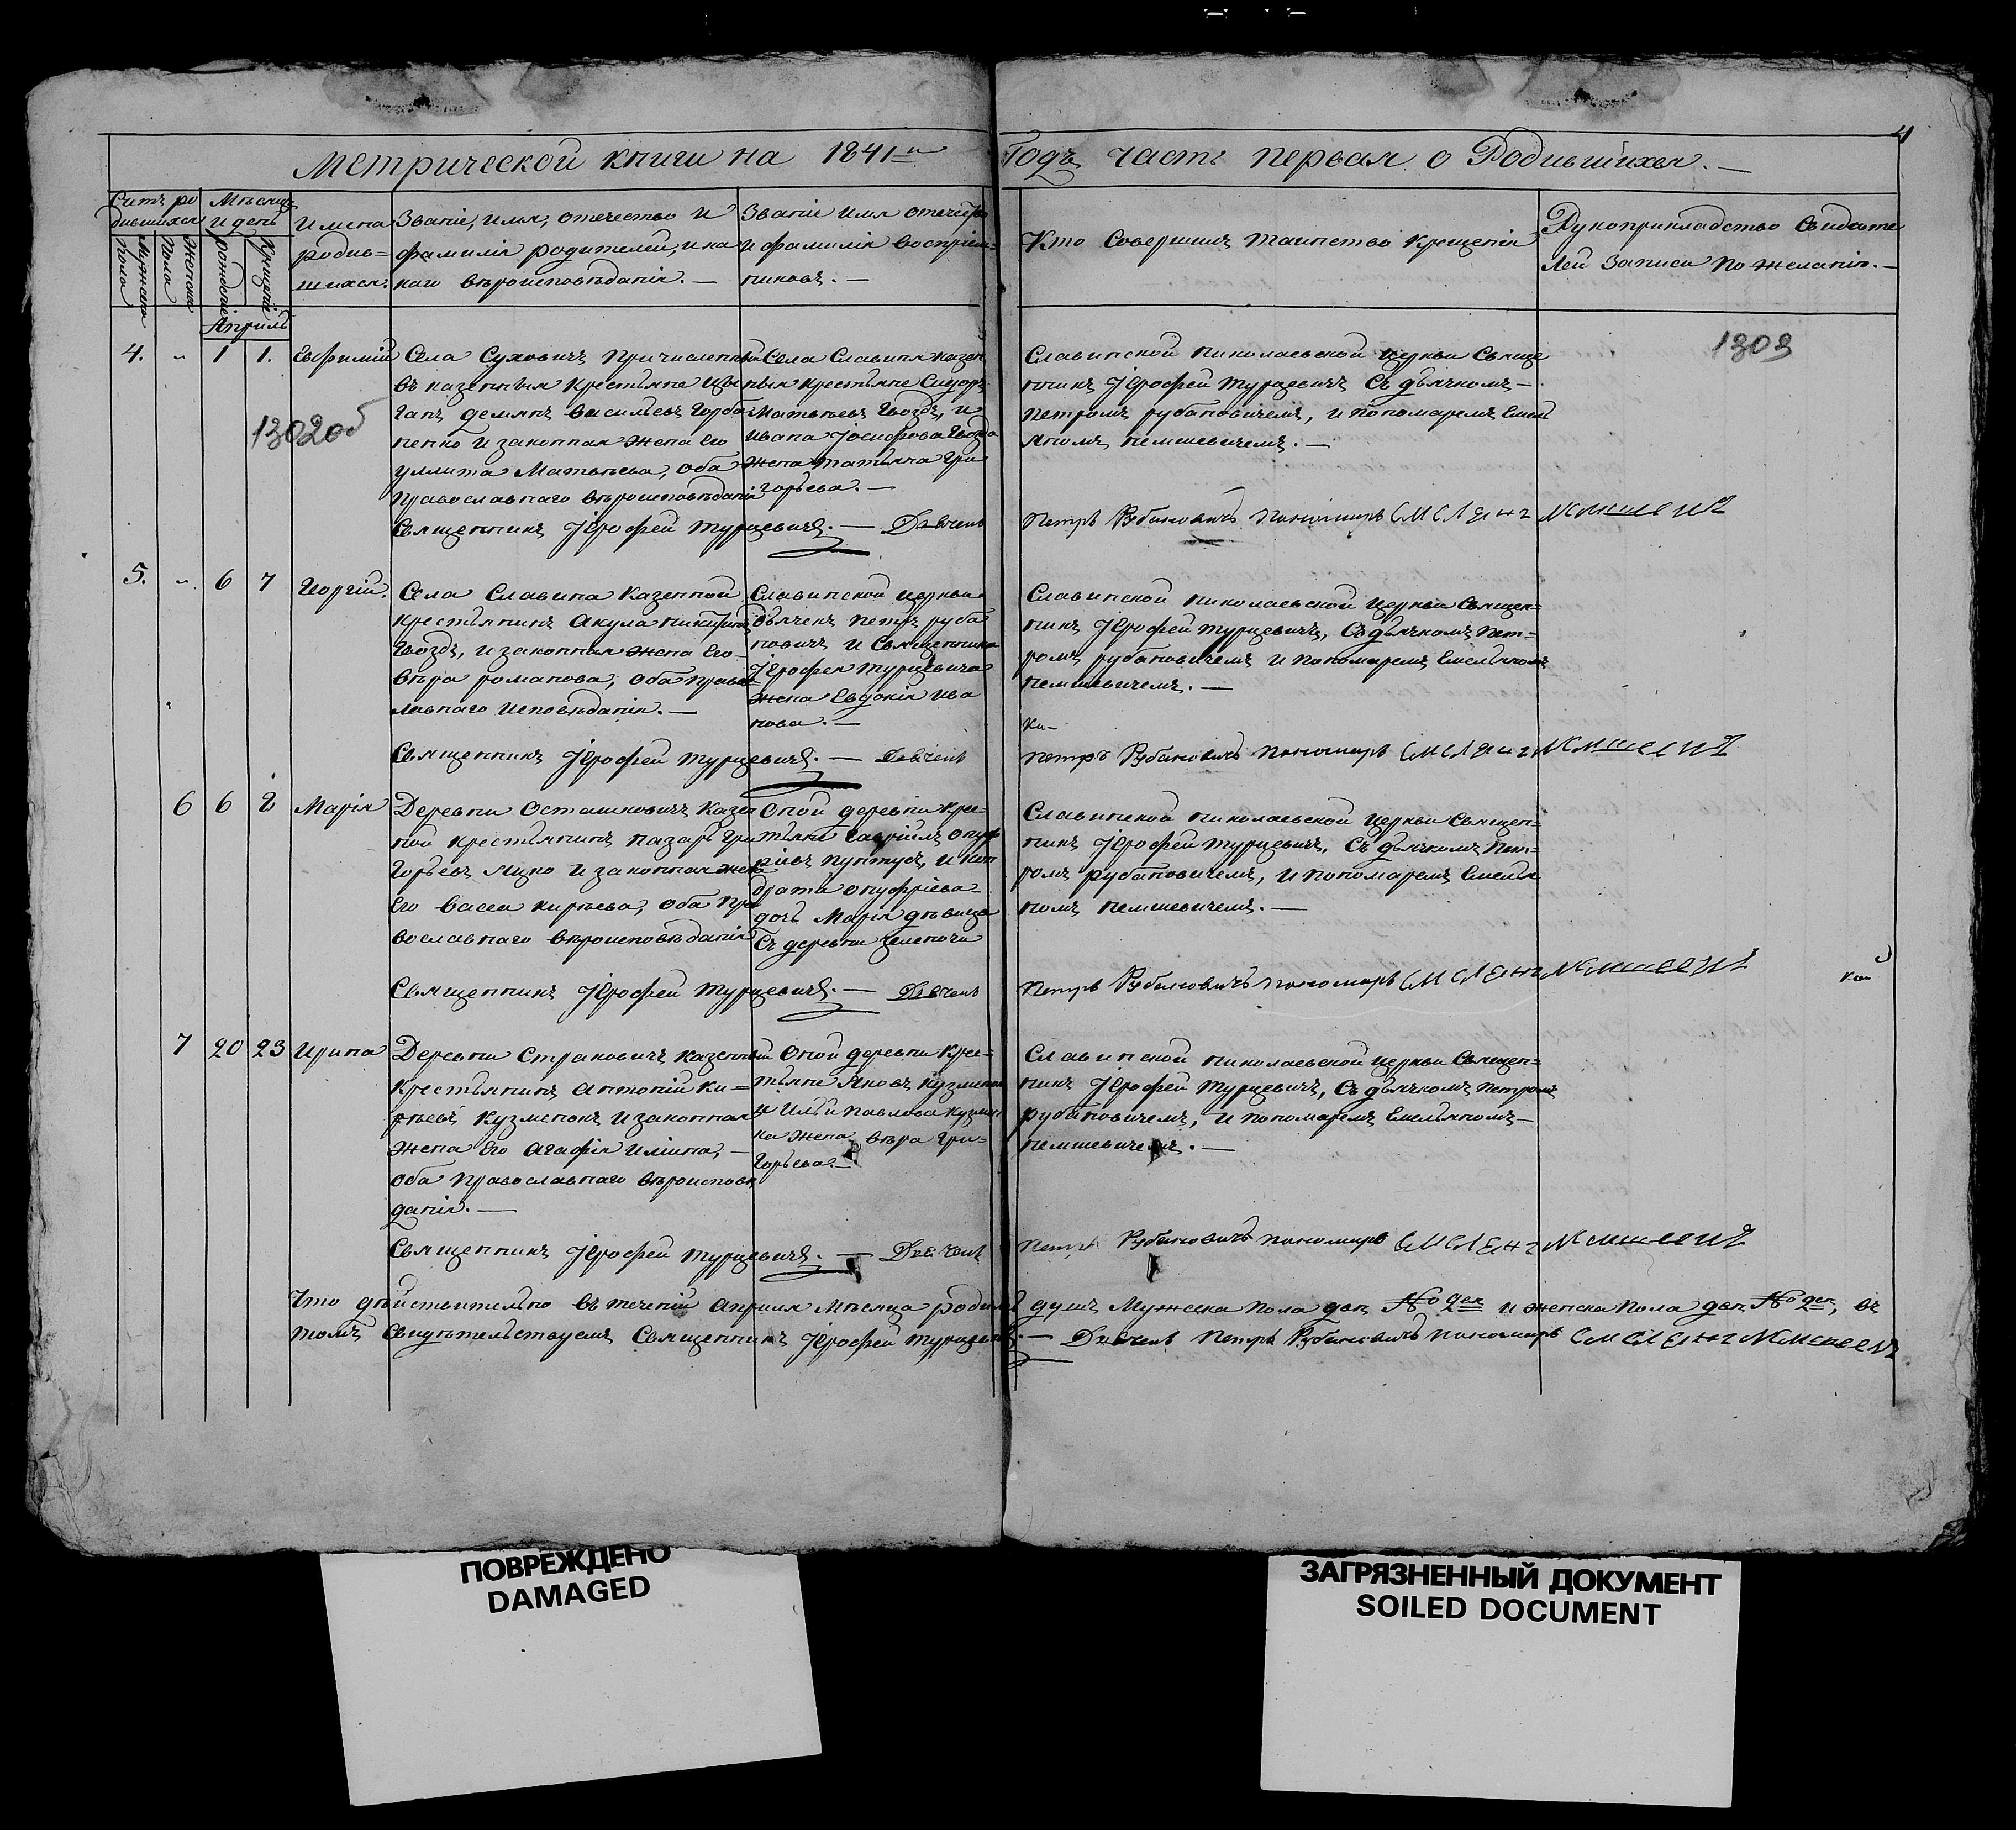 4
Метрической книги на 1841й Годъ часть первая о Родившихся. —
Счетъ ро
дившихся
Мужеска
пола
Женска
пола
Мѣсяцъ
и день
рожденія
Крещенія
Имена
родив=
шихся.
Званіе, имя, отечество и
фамилія родителей, и ка
каго вѣроисповѣданія. —
Званіе имя отечество
и фамилія воспріем=
никовъ. —
Кто Совершилъ таинство крещенія
Рукоприкладство Свидѣте
лей Записи по желанію. —
Апрель
1303
4. „ 1 1. Евфимій
1302об
Села Суховичъ причисленный
въ казенныя крестьяне Цы
ганъ Демянъ Васильевъ Горба
ненко и законная жена Его
Улита Матвѣева, оба
Православнаго вѣроисповѣданія
Села Славина казен
ныя крестьяне Сидоръ
Матвѣевъ Гвоздь, и
Ивана Іосифова Гвоздя
жена Татьяна Гри
горьева. —
Славинской Николаевской Церкви Свяще
нникъ Іерофей Турцевичъ Съ дьячкомъ —
Петромъ Рубановичемъ, и пономаремъ Емель
яномъ Немшевичемъ. —
Священникъ Іерофей Турцевичъ. — Дьячекъ Петръ Рубановичъ пономаръ Емелян Немшевич
5. „ 6 7 Георгій.
Села Славина Казенной
крестьянинъ Акула Никифоровъ
Гвоздь, и законная жена Его —
Вѣра Романова, оба Правос
лавнаго исповѣданія. —
Славинской церкви
Дьячекъ Петръ Руба
новичъ и Священника
Іерофея Турцевича
жена Евдокія Ива
нова. —
Славинской Николаевской Церкви Священ=
никъ Іерофей Турцевичъ, Съ дьячкомъ Пет=
ромъ Рубановичемъ и пономаремъ Емельяномъ
Немшевичемъ. —
Священникъ Іерофей Турцевичъ. — Дьячекъ Петръ Рубановичъ пономаръ Емелян Немшевич
6 6 Марія
Деревни Осташковичъ Казен
ной крестьянинъ Назаръ Гри
горьевъ Яцко и законная жена
Его Васса Кирѣева, оба Пра
вославнаго вѣроисповѣданія
Оной деревни Крес=
тьяне Гавріилъ Онуф
ріевъ Пунтусъ, и Кон
драта Онуфріева
дочь Марія дѣвица
Съ деревни
Славинской Николаевской Церкви Священ=
никъ Іерофей Турцевичъ, Съ дьячкомъ Пет=
ромъ Рубановичемъ, и пономаремъ Емелья
номъ Немшевичемъ. —
Священникъ Іерофей Турцевичъ. — Дьячекъ Петръ Рубановичъ пономаръ Емелян Немшевич
7 20 23 Ирина
Деревни Страковичъ казенный
Крестьянинъ Антоній Ки=
рѣевъ Кузменокъ и законная
жена Его Агафія Иліина, —
оба Православнаго вѣроисповѣ
данія. —
Оной деревни Крес=
тьяне Яковъ Кузменок
и Ильи Павлова Кузмен
ка жена Вѣра Гри=
горьева. —
Славинской Николаевской Церкви Священ=
никъ Іерофей Турцевичъ, Съ дьячкомъ Петромъ
Рубановичемъ, и пономаремъ Емельяномъ —
Немшевичемъ. —
Священникъ Іерофей Турцевичъ. — Дьячекъ Петръ Рубановичъ пономаръ Емелян Немшевич
Что дѣйствительно въ теченіи Апреля Мѣсяца родил душъ Мужеска пола два и женска пола два, въ
томъ Свидѣтельствуемъ Священникъ Іерофей Турцевичъ. — Дьячекъ Петръ Рубановичъ пономаръ Емелян Немшевич
ПОВРЕЖДЕНО
DAMAGED
ЗАГРЯЗНЕННЫЙ ДОКУМЕНТ
SOILED DOCUMENT